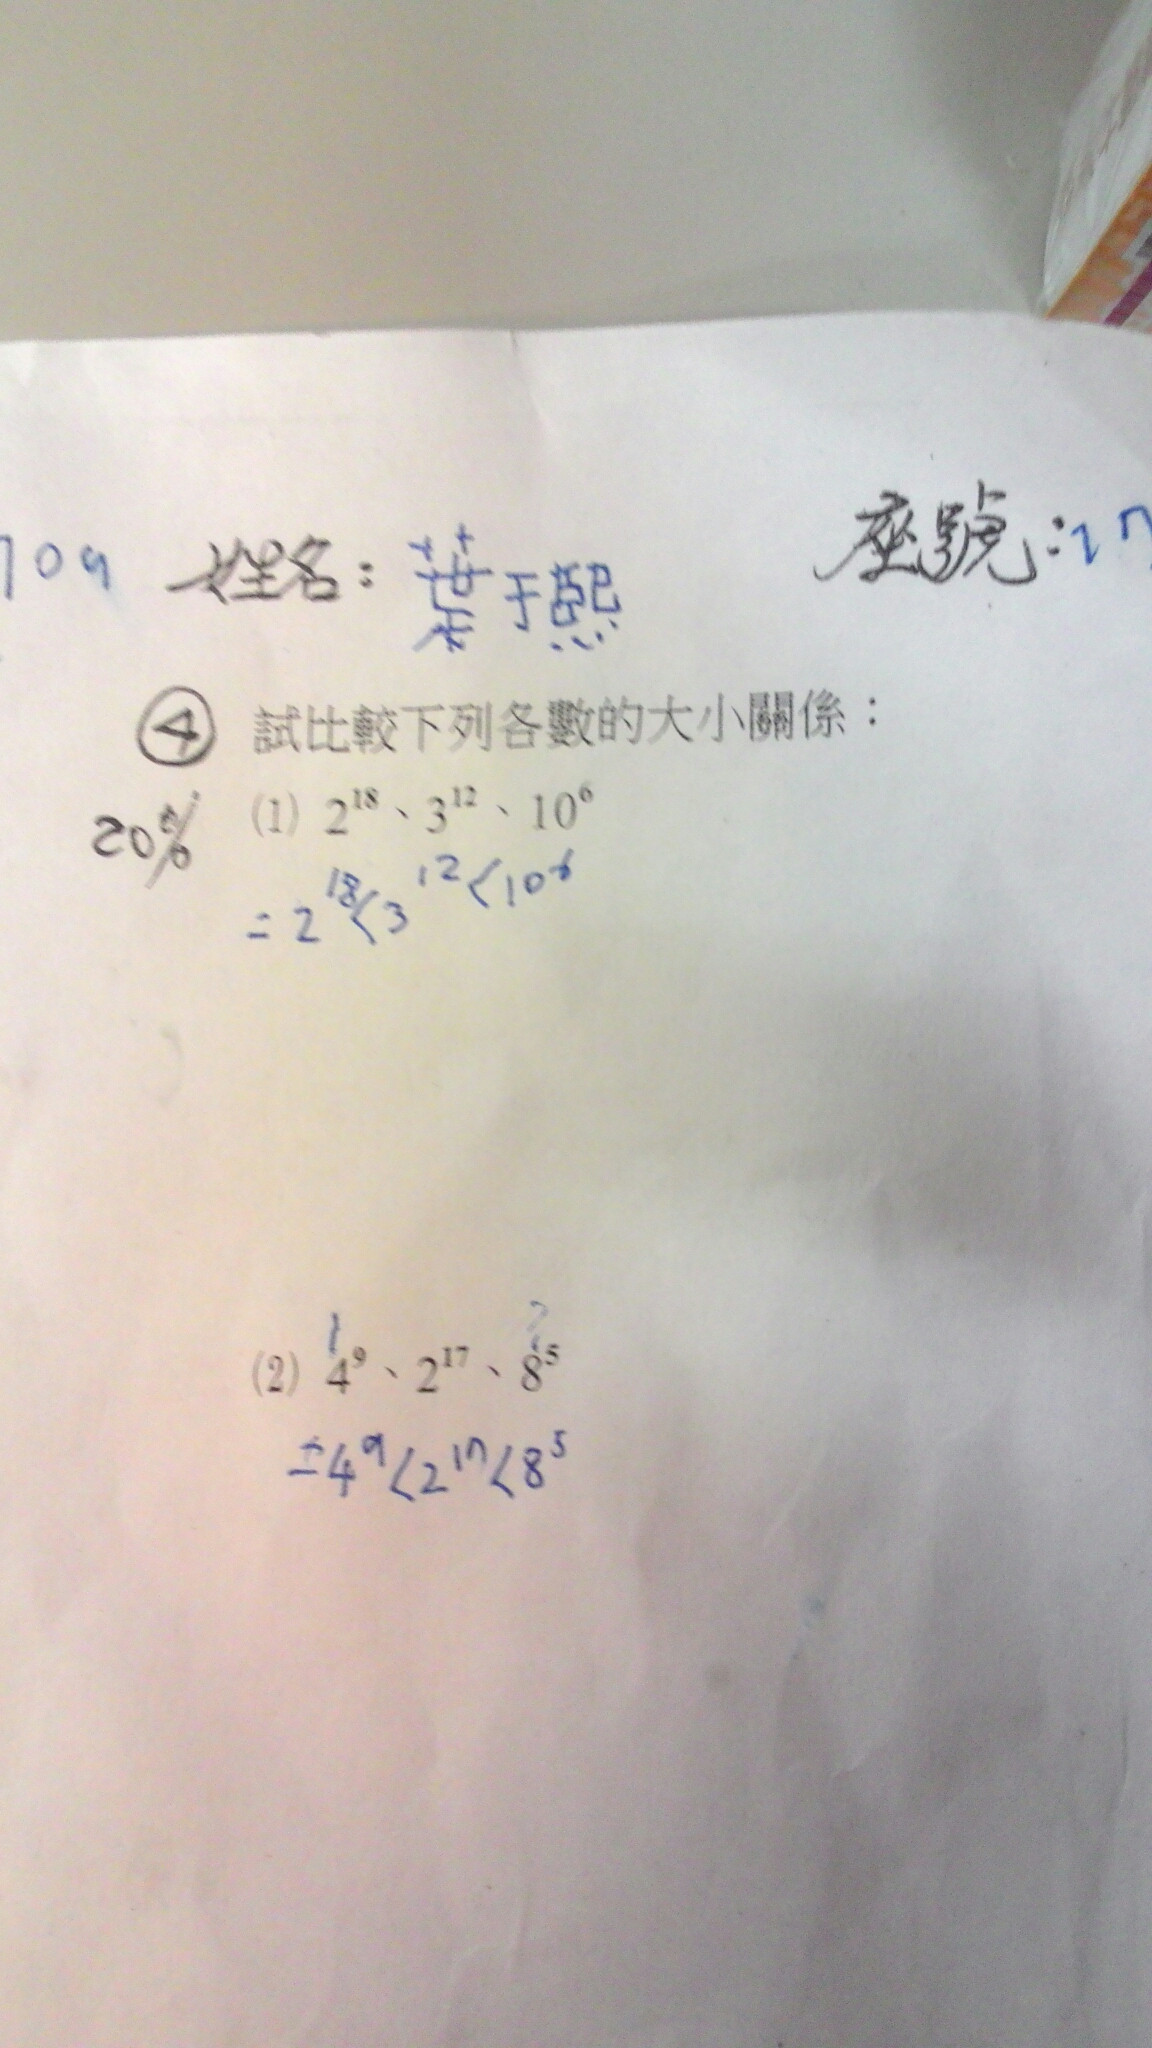 709 姓名：葉于熙 座號：27
④ 試比較下列各數的大小關係：
20% (1) 2¹⁸、3¹²、10⁶
= 2¹⁸<3¹²<10⁶
(2) 4⁹、2¹⁷、8⁵
= 4⁹<2¹⁷<8⁵